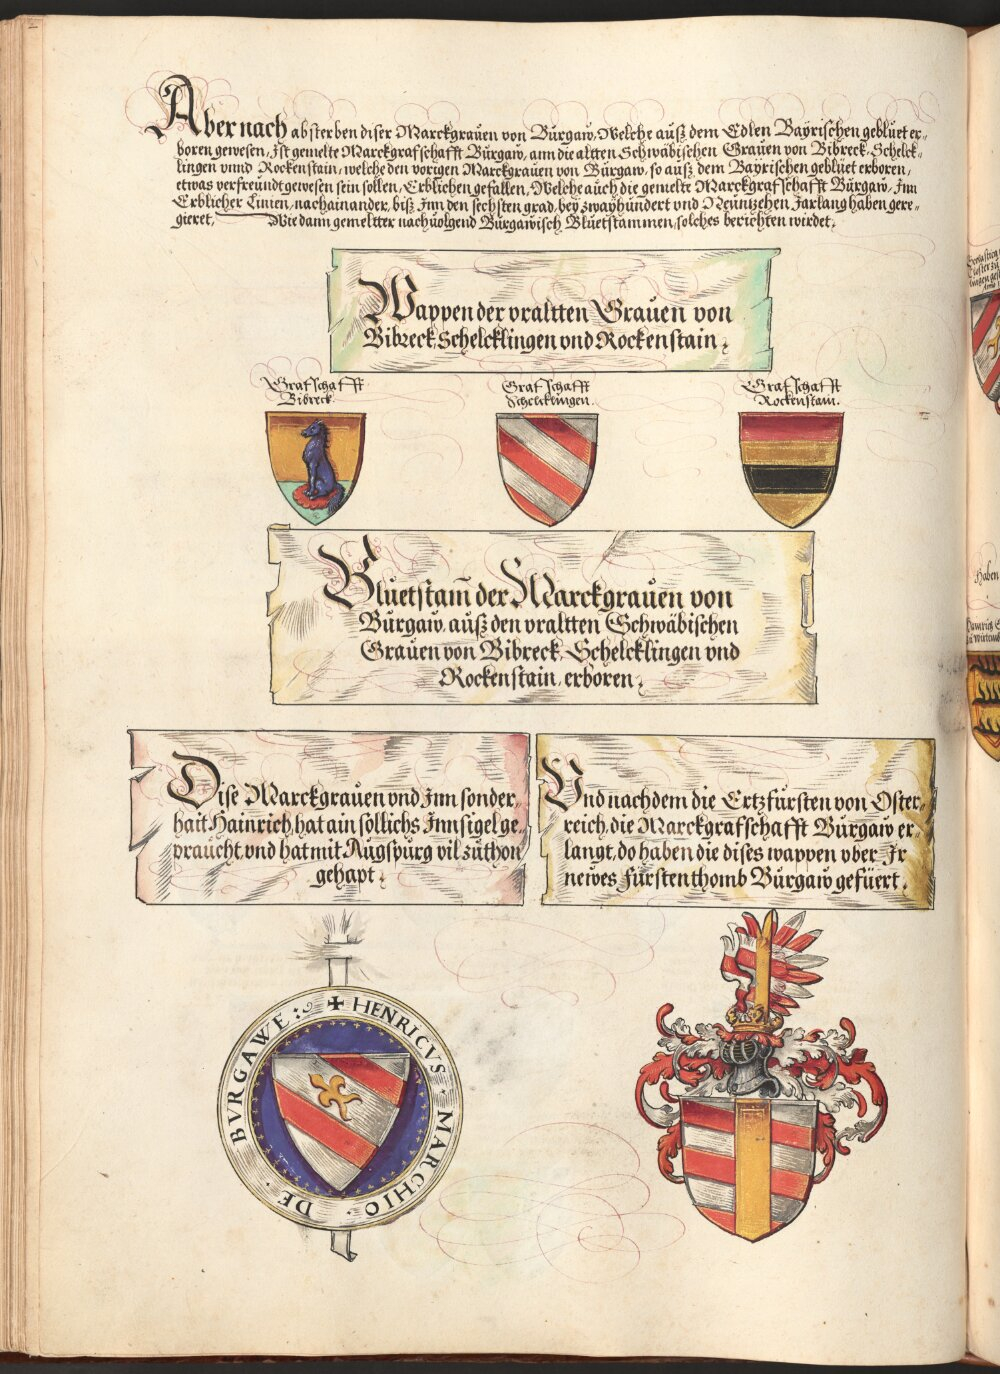 Aber nach absterben diser Marckgraüen von Bürgaw, Welche aüß dem Edlen Bayrischen geblüet er-
boren gewesen, Ist gemelte Marckgrafschafft Bürgaw, ann die altten Schwäbischen Graüen von Bibreck, Schelck-
lingen vnnd Rockenstain, welche den vorigen Marckgraüen von Bürgaw, so aüß dem Bayrischen geblüet erboren,
etwas verfreündt gewesen sein sollen, Erblichen gefallen, Welche aüch die gemelte Marckgrafschafft Bürgaw, Inn
Erblicher Linien, nacheinander, biß Inn den sechsten grad, bey zwayhündert vnd Neüntzehen Jar lang haben gere-
gieret, Wie dann gemeltter nachüolgend Bürgawisch Blüetstammen, solches berichten wirdet.
Wappen der vraltten Graüen von
Bibreck, Schelcklingen vnd Rockenstain.
Grafschafft
Bibreck.
Grafschafft
Schelcklingen.
Grafschafft
Rockenstain.
Blüetstam̄ der Marckgraüen von
Bürgaw, aüß den vraltten Schwäbischen
Graüen von Bibreck, Schelcklingen vnd
Rockenstain, erboren.
Dise Marckgraüen vnd Inn sonder-
hait Hainrich, hat ain söllichs Innsigel ge-
praücht, vnd hat mit Aügspürg vil zuthon
gehapt.
Vnd nachdem die Ertzfürsten von Öster-
reich, die Marckgrafschafft Bürgaw er-
langt, do haben die dises wappen vber Ir
newes fürstenthomb Bürgaw gefüert.
✠ HENRICVS · MARCHIO · DE · BVRGAWE :
Haben